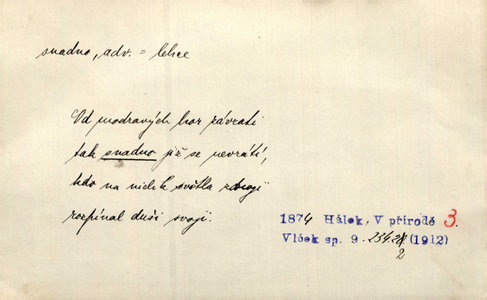 snadno, adv. = lehce
Od modravých hor závratí
tak snadno již se nevrátí,
kdo na nich k světla zdroji
rozpínal duši svoji.
1874 Hálek, V přírodě 3.
Vlček sp. 9. 254. (1912)
2